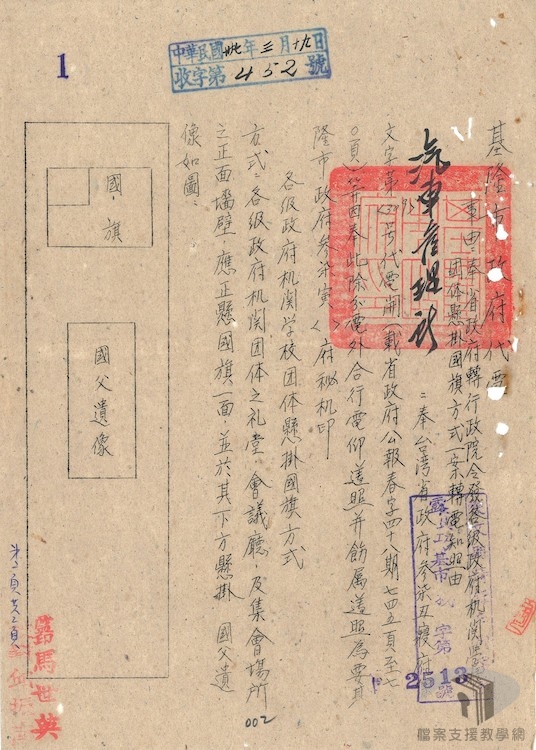 1
中華民國卅七年三月十九日
收字第452號
基隆市政府代電
事由：奉省政府轉行政院令發各級政府机関學校
团体懸掛國旗方式一案轉電知照由
汽車管理所
奉台湾省政府參柒丑寢府
文字第 号代電開（載省政府公報春字四十八期七四五頁至七
〇頁）等因奉此除分電外合行電仰遵照并飭属遵照為要基
隆市政府參柒寅 府秘机印
各級政府机関学校团体懸掛國旗方式
方式：各級政府机関团体之礼堂，會議廳，及集會場所
之正面墻壁，應正懸國旗一面，並於其下方懸掛 國父遺
像如圖：
國旗
國父遺像
2513
號
002
檔案支援教學網